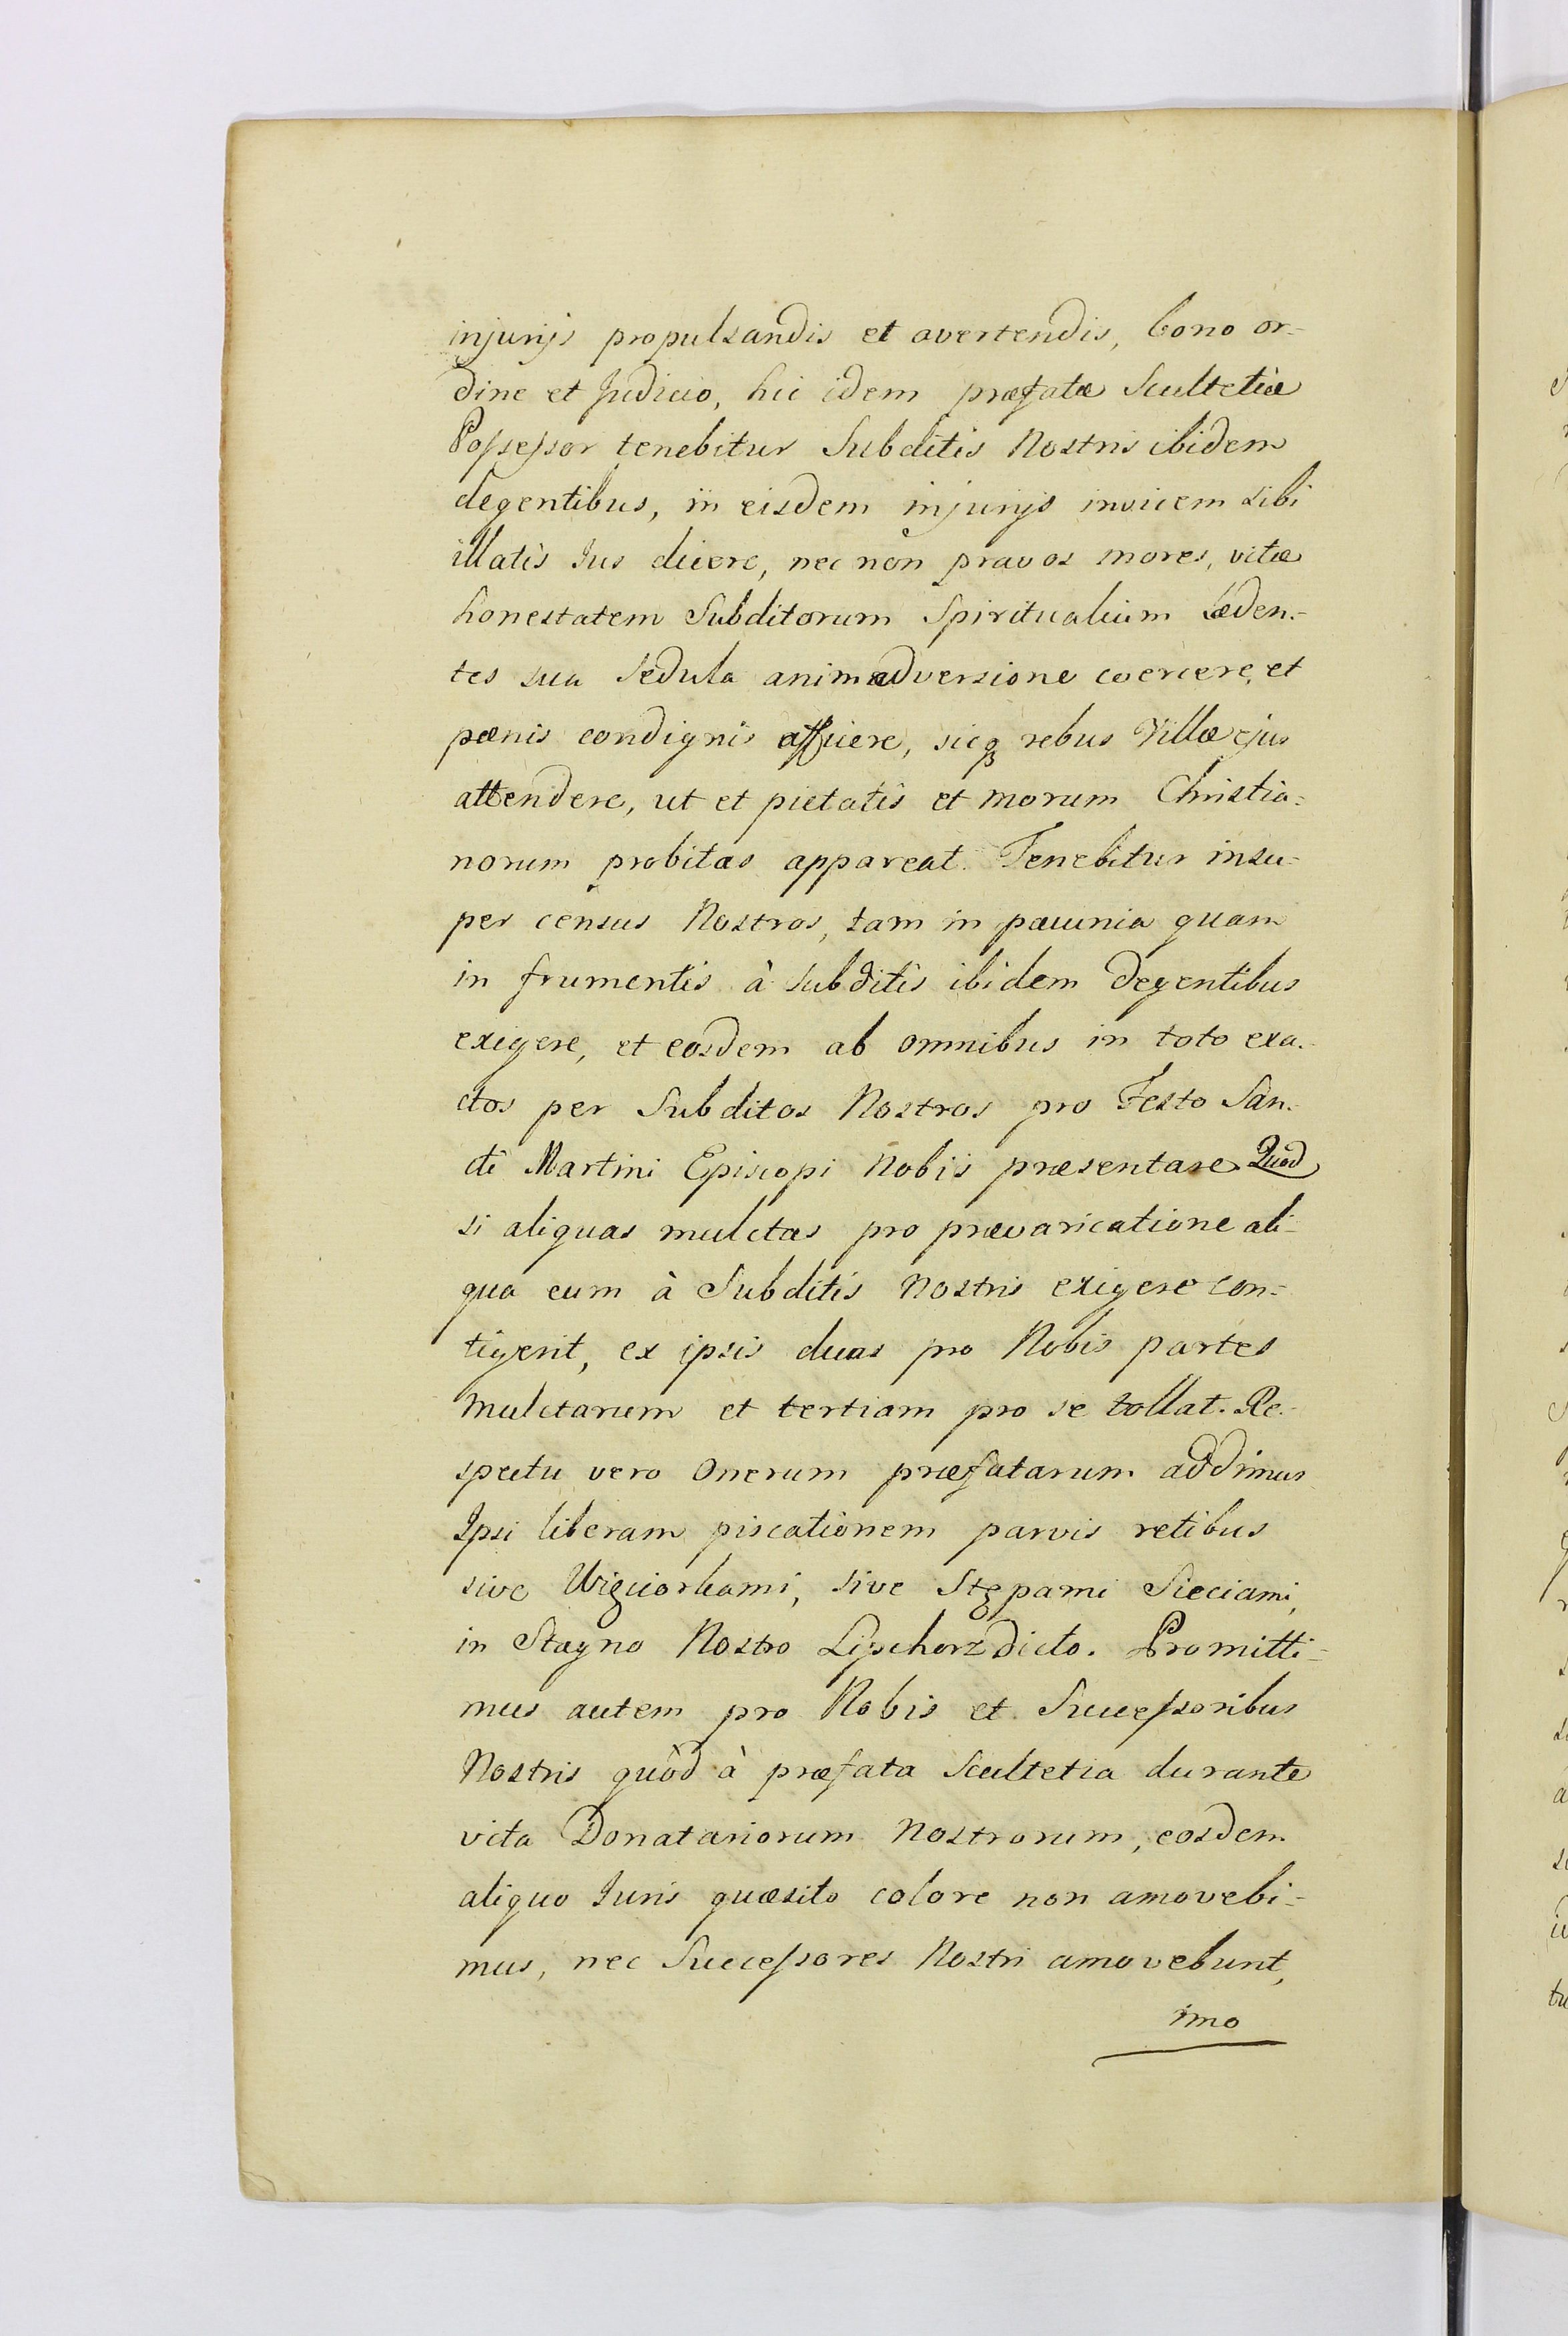 injurijs propulsandis et avertendis, bono or=
dine et Judicio, hic idem præfatæ Scultetiæ
Poſseſsor tenebitur Subditis Nostris ibidem
degentibus, in eisdem injurijs invicem sibi
illatis Jus dicere, nec non pravos mores, vitæ
honestatem Subditorum Spiritualium læden=
tes sua sedula animadversione coercere, et
pænis condignis afficere, sicq̨ rebus Villæ ejus
attendere, ut et pietatis et morum Christia=
norum probitas appareat. Tenebitur insu=
per census Nostros, tam in pæcunia quam
in frumentis à subditis ibidem degentibus
exigere, et eosdem ab omnibus in toto exa=
ctos per Subditos Nostros pro Festo San=
cti Martini Episcopi Nobis præsentare. Quod
si aliquas mulctas pro prævaricatione ali=
qua eum à Subditis Nostris exigere con=
tigerit, ex ipsis duas pro Nobis partes
mulctarum et tertiam pro se tollat. Re=
spectu vero Onerum præfatarum addimus
Ipsi liberam piscationem parvis retibus
sive Więciorkami, sive Stępami Sieciami,
in Stagno Nostro Lipchorz dicto. Promitti=
mus autem pro Nobis et Succeſsoribus
Nostris quòd à præfata Scultetia durante
vita Donatariorum Nostrorum, eosdem
aliquo Juris quæsito colore non amovebi=
mus, nec Succeſsores Nostri amovebunt,
imo